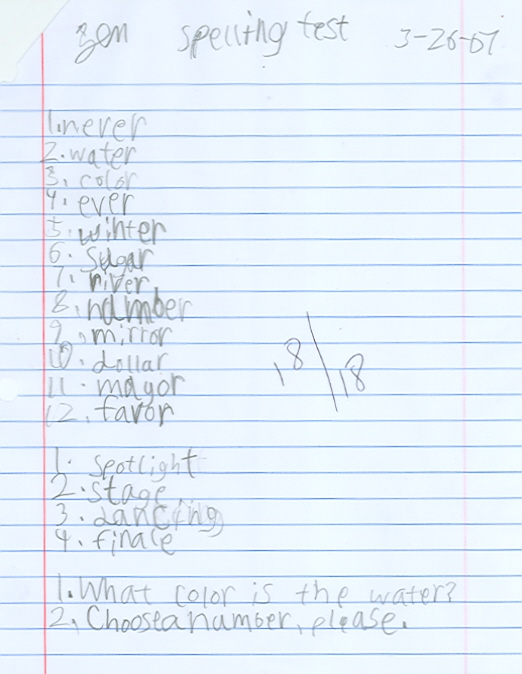 zen spelling test 3-26-07
1. never
2. water
3. color
4. ever
5. winter
6. sugar
7. river
8. number
9. mirror
10. dollar
11. mayor
12. favor
18/18
1. spotlight
2. stage
3. dancing
4. finale
1. What color is the water?
2. Choose a number, please.